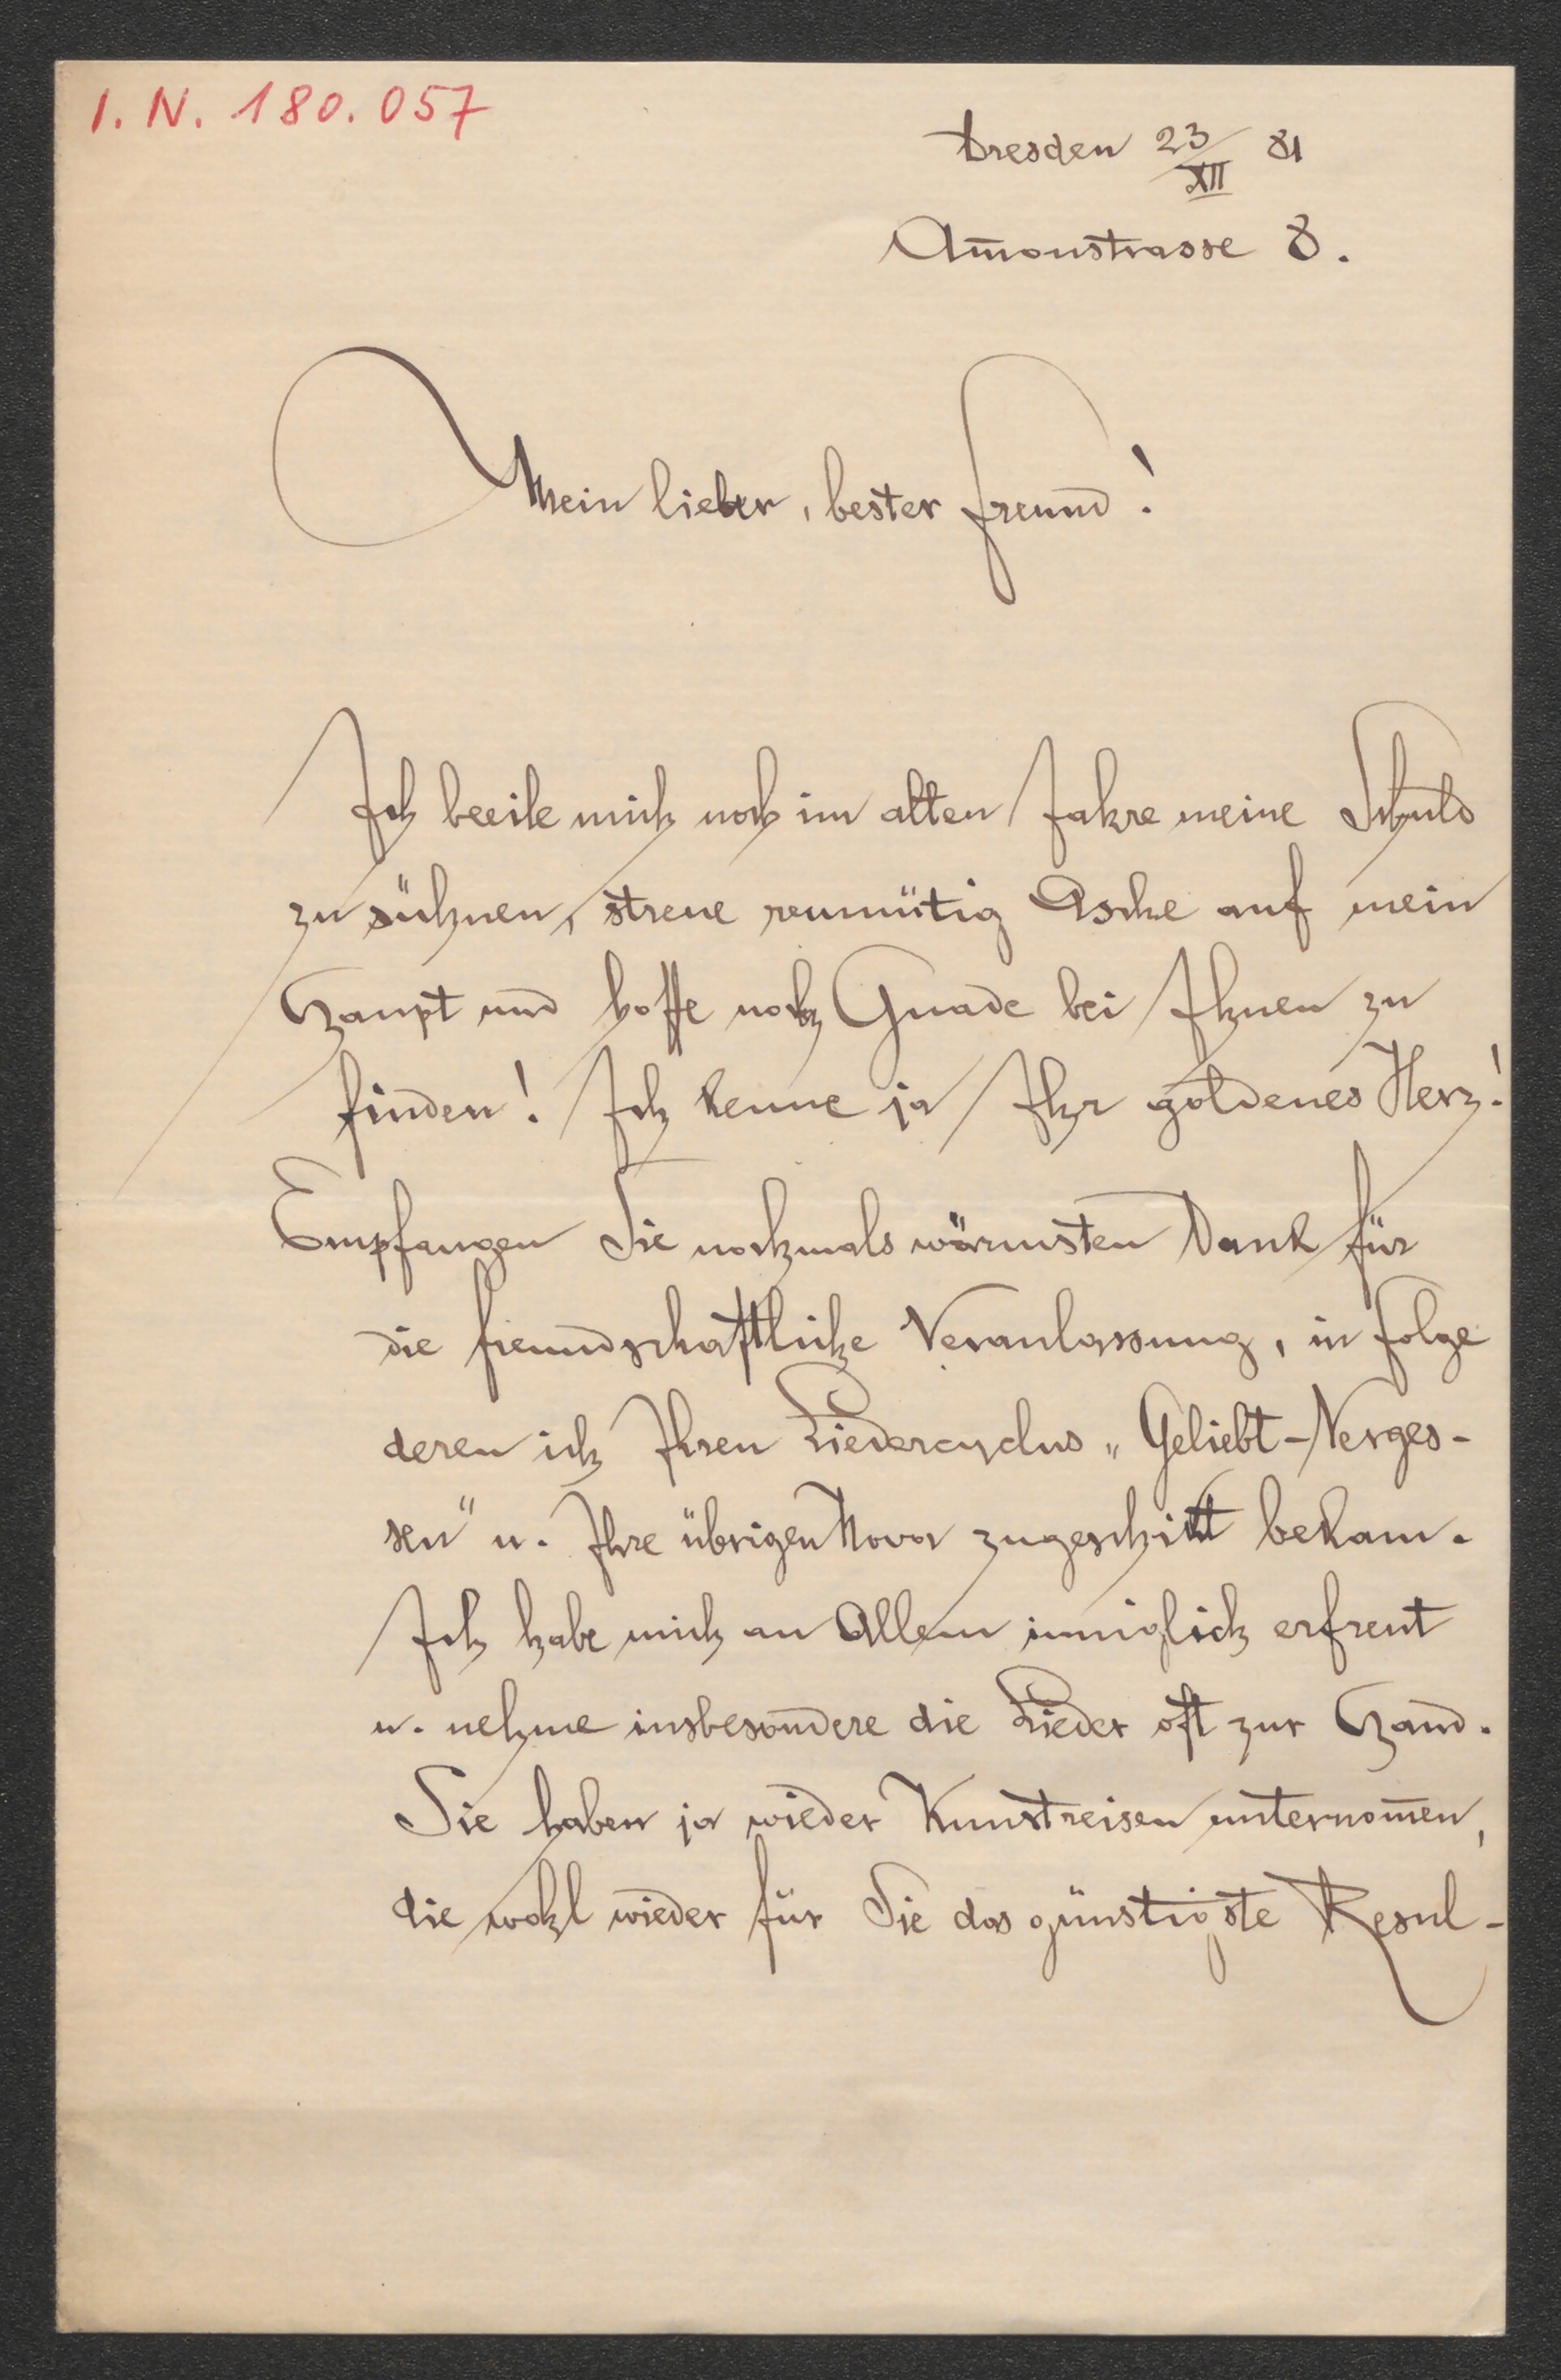 I. N. 180.057
Dresden 23/XII 81
Am̅onstrasse 8.
Mein lieber, bester Freund!
Ich beeile mich noch im alten Jahre meine Schuld
zu sühnen, streue reumütig Asche auf mein
Haupt und hoffe noch Gnade bei Ihnen zu
finden! Ich kenne ja Ihr goldenes Herz!
Empfangen Sie nochmals wärmsten Dank für
die freundschaftliche Veranlassung, in Folge
deren ich Ihren Liedercyclus „Geliebt-Verges-
sen" u. Ihre übrigen Nova zugeschickt bekam.
Ich habe mich an Allem inniglich erfreut
u. nehme insbesondere die Lieder oft zur Hand.
Sie haben ja wieder Kunstreisen unternom̅en,
die wohl wieder für Sie das günstigste Resul-